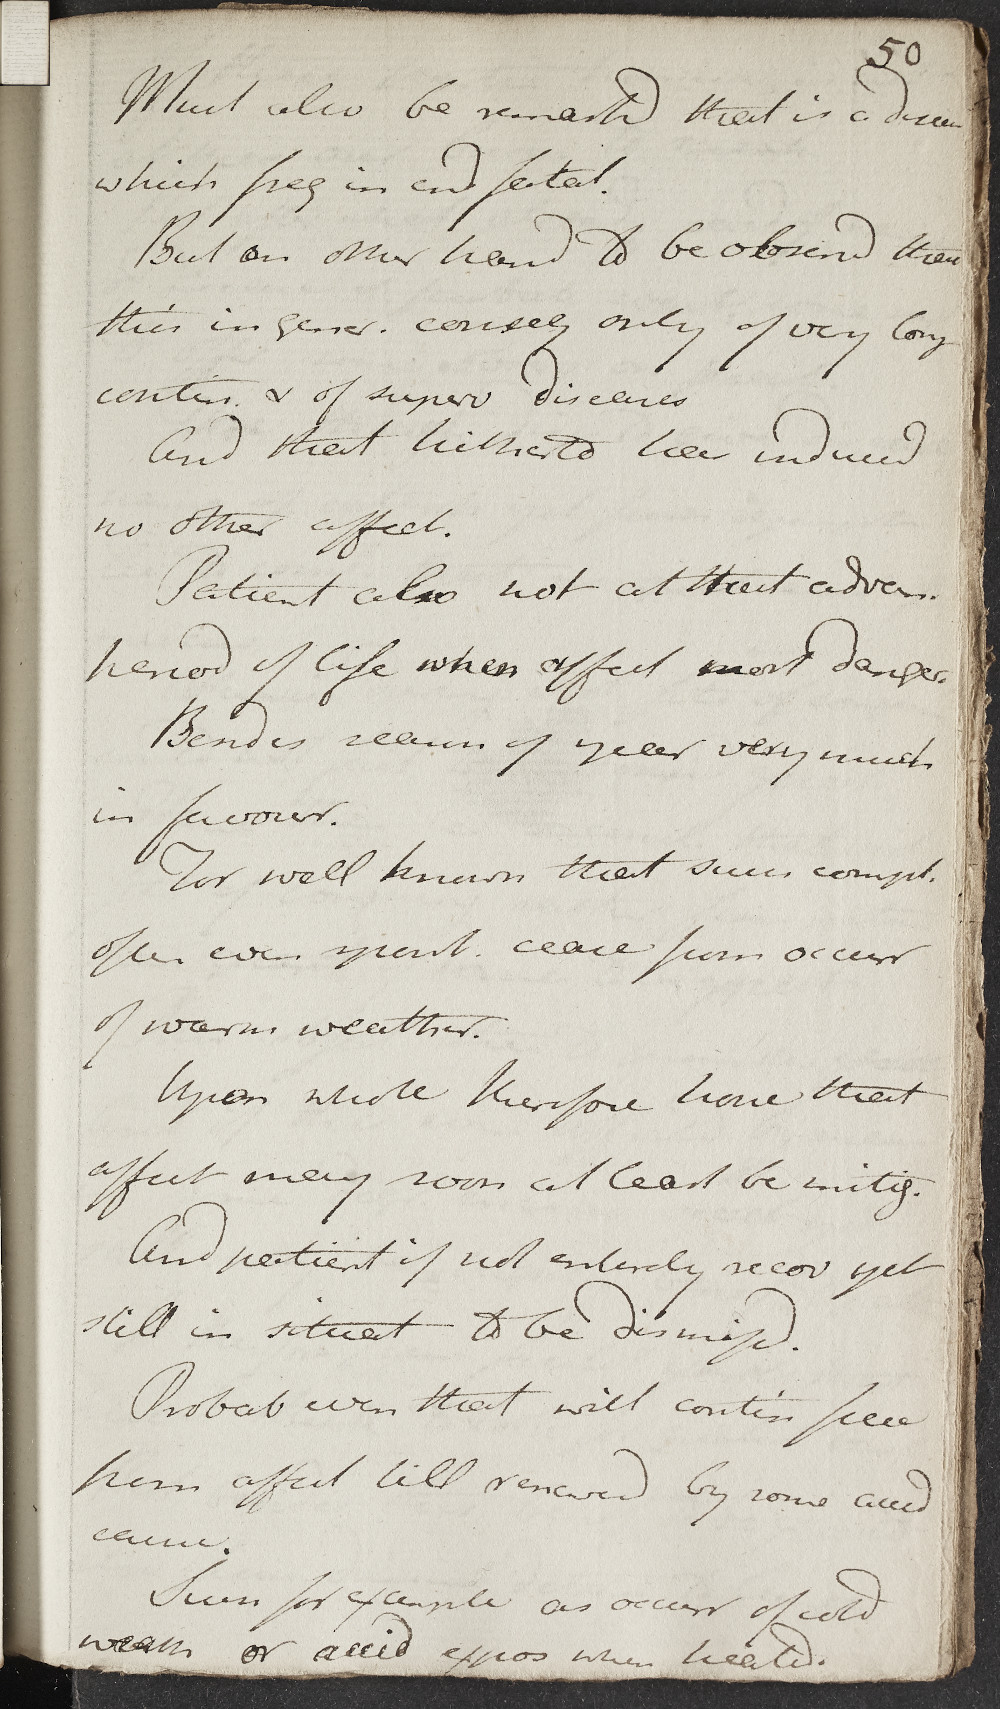 50
Must also be remarkd that is a diseas
which freq in end fatal.
But on other hand to be observd that
this in gener. conseq only of very long
contin. & of superv diseases
And that hitherto has induced
no other affect.
Patient also not at that advan.
period of life when affect most danger.
Besides season of year very much
in favour.
For well known that such compl.
often even spont. cease from occurr
of warm weather.
Upon whole therefore hope that
affect may soon at least be mitig.
And patient if not entirely recov yet
still in situat to be dismissd.
Probab even that will contin free
from affect till renewed by some accid
cause.
Such for example as occurr of cold
weath or accid expos when heated.